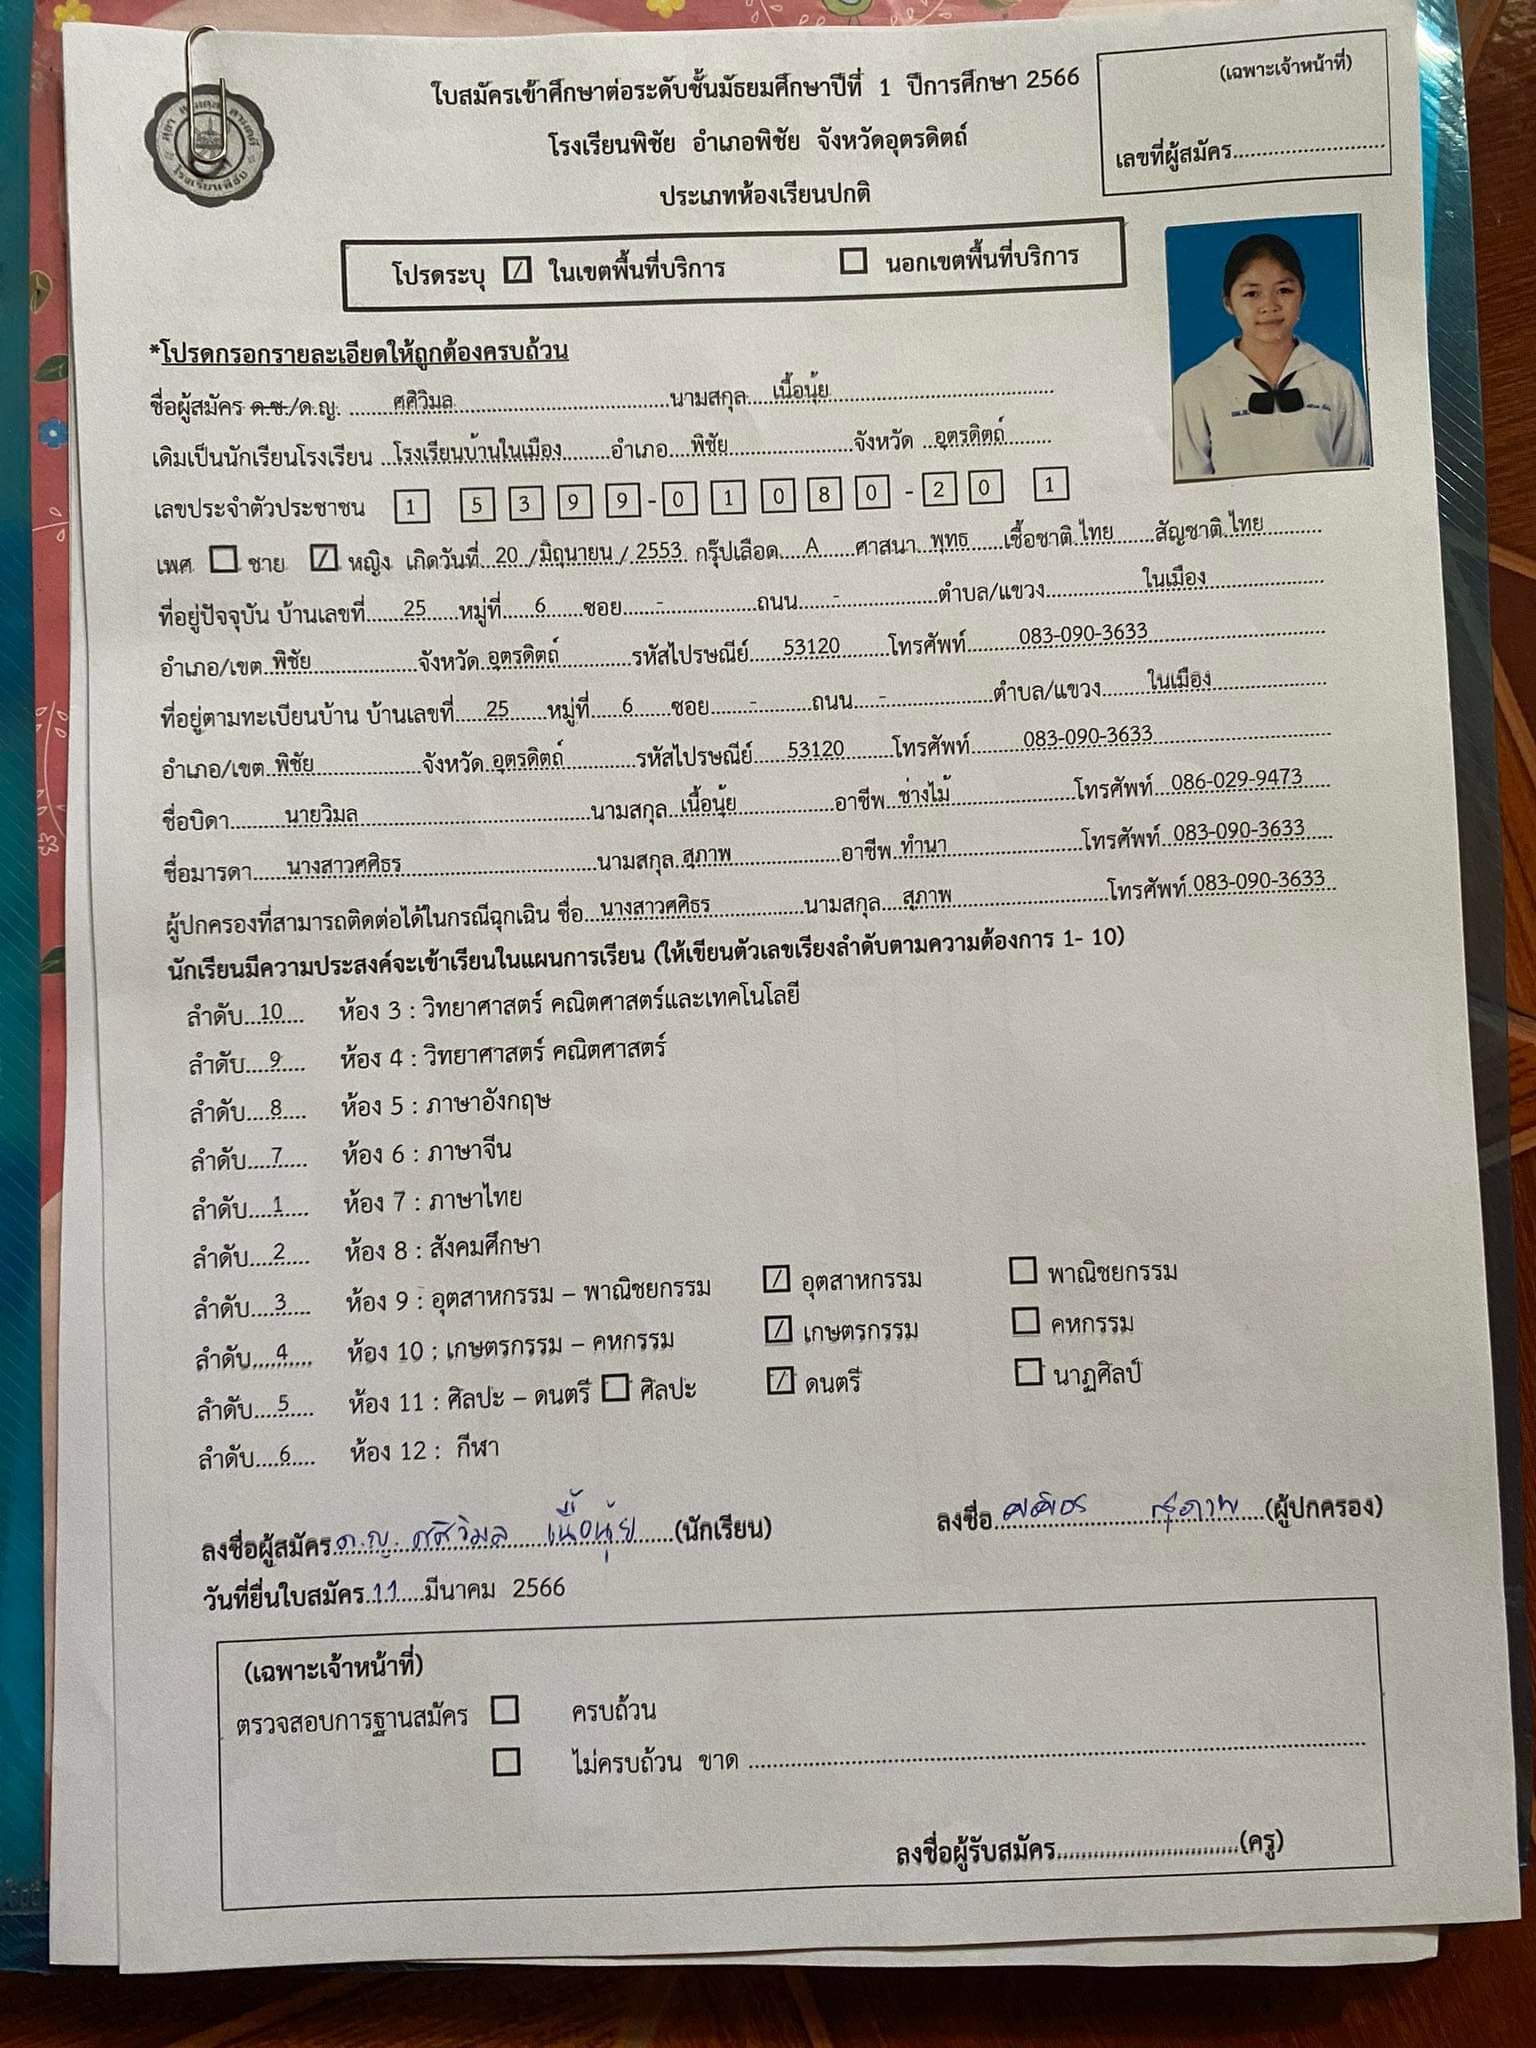 ใบสมัครเข้าศึกษาต่อระดับชั้นมัธยมศึกษาปีที่ 1 ปีการศึกษา 2566
(เฉพาะเจ้าหน้าที่)
โรงเรียนพิชัย อำเภอพิชัย จังหวัดอุตรดิตถ์
เลขที่ผู้สมัคร..........................
ประเภทห้องเรียนปกติ
โรงเรียนพิชัย
โปรดระบุ [/] ในเขตพื้นที่บริการ [ ] นอกเขตพื้นที่บริการ
*โปรดกรอกรายละเอียดให้ถูกต้องครบถ้วน
ชื่อผู้สมัคร ด.ช./ด.ญ. ......ศศิวิมล......นามสกุล....เนื้อนุ้ย......
เดิมเป็นนักเรียนโรงเรียน ..โรงเรียนบ้านในเมือง......อำเภอ....พิชัย......จังหวัด ..อุตรดิตถ์......
เลขประจำตัวประชาชน 1 5 3 9 9 - 0 1 0 8 0 - 2 0 1
เพศ [ ] ชาย [/] หญิง เกิดวันที่ ..20 ../มิถุนายน../..2553.. กรุ๊ปเลือด....A.... ศาสนา..พุทธ....เชื้อชาติ.ไทย......สัญชาติ.ไทย......
ที่อยู่ปัจจุบัน บ้านเลขที่.....25.....หมู่ที่.....6.....ซอย.....-......ถนน.....-......ตำบล/แขวง......ในเมือง......
อำเภอ/เขต.พิชัย......จังหวัด.อุตรดิตถ์......รหัสไปรษณีย์.....53120......โทรศัพท์......083-090-3633......
ที่อยู่ตามทะเบียนบ้าน บ้านเลขที่.....25.....หมู่ที่.....6.....ซอย.....-......ถนน....-......ตำบล/แขวง......ในเมือง......
อำเภอ/เขต.พิชัย......จังหวัด.อุตรดิตถ์......รหัสไปรษณีย์.....53120......โทรศัพท์......083-090-3633......
ชื่อบิดา......นายวิมล......นามสกุล..เนื้อนุ้ย......อาชีพ..ช่างไม้......โทรศัพท์..086-029-9473......
ชื่อมารดา.....นางสาวศศิธร......นามสกุล.สุภาพ......อาชีพ.ทำนา......โทรศัพท์..083-090-3633......
ผู้ปกครองที่สามารถติดต่อได้ในกรณีฉุกเฉิน ชื่อ...นางสาวศศิธร......นามสกุล....สุภาพ......โทรศัพท์.083-090-3633..
นักเรียนมีความประสงค์จะเข้าเรียนในแผนการเรียน (ให้เขียนตัวเลขเรียงลำดับตามความต้องการ 1- 10)
ลำดับ...10.... ห้อง 3 : วิทยาศาสตร์ คณิตศาสตร์และเทคโนโลยี
ลำดับ....9.... ห้อง 4 : วิทยาศาสตร์ คณิตศาสตร์
ลำดับ....8.... ห้อง 5 : ภาษาอังกฤษ
ลำดับ....7.... ห้อง 6 : ภาษาจีน
ลำดับ....1.... ห้อง 7 : ภาษาไทย
ลำดับ....2.... ห้อง 8 : สังคมศึกษา
ลำดับ....3.... ห้อง 9 : อุตสาหกรรม – พาณิชยกรรม [/] อุตสาหกรรม [ ] พาณิชยกรรม
ลำดับ....4.... ห้อง 10 : เกษตรกรรม – คหกรรม [/] เกษตรกรรม [ ] คหกรรม
ลำดับ....5.... ห้อง 11 : ศิลปะ – ดนตรี [ ] ศิลปะ [/] ดนตรี [ ] นาฏศิลป์
ลำดับ....6.... ห้อง 12 : กีฬา
ลงชื่อผู้สมัคร ด.ญ. ศศิวิมล เนื้อนุ้ย ......(นักเรียน) ลงชื่อ ศศิธร สุภาพ ....(ผู้ปกครอง)
วันที่ยื่นใบสมัคร.11......มีนาคม 2566
(เฉพาะเจ้าหน้าที่)
ตรวจสอบการฐานสมัคร [ ] ครบถ้วน
[ ] ไม่ครบถ้วน ขาด ............................................................
ลงชื่อผู้รับสมัคร..............................(ครู)